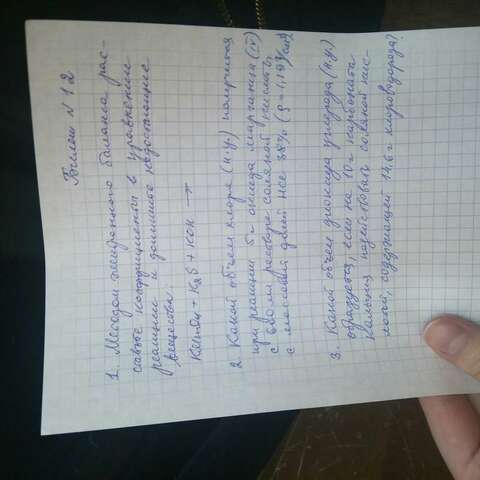 Билет N 12
1. Методом электронного баланса рас-
ставьте коэффициенты в уравнение
реакции и допишите недостающие
вещества:
KMnO4 + K2S + KOH →
2. Какой объем хлора (н.у.) получится
при реакции 5г оксида марганца (IV)
с 60 мл раствора соляной кислоты
с массовой долей HCl 38% (ρ = 1,19 г/см3)
3. Какой объем диоксида углерода (н.у.)
образуется, если на 10г карбоната
кальция подействовали соляной кис-
лотой, содержащей 14,6 г хлороводорода?